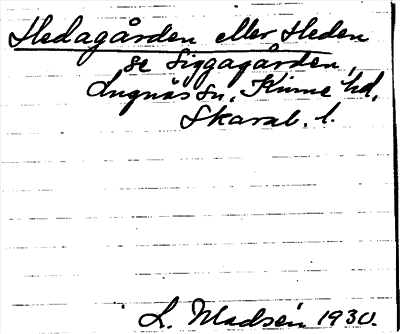 Hedagården eller Heden
se Siggagården,
Lugnås sn, Kinne hd,
Skarab. l.
L. Madsén 1930.